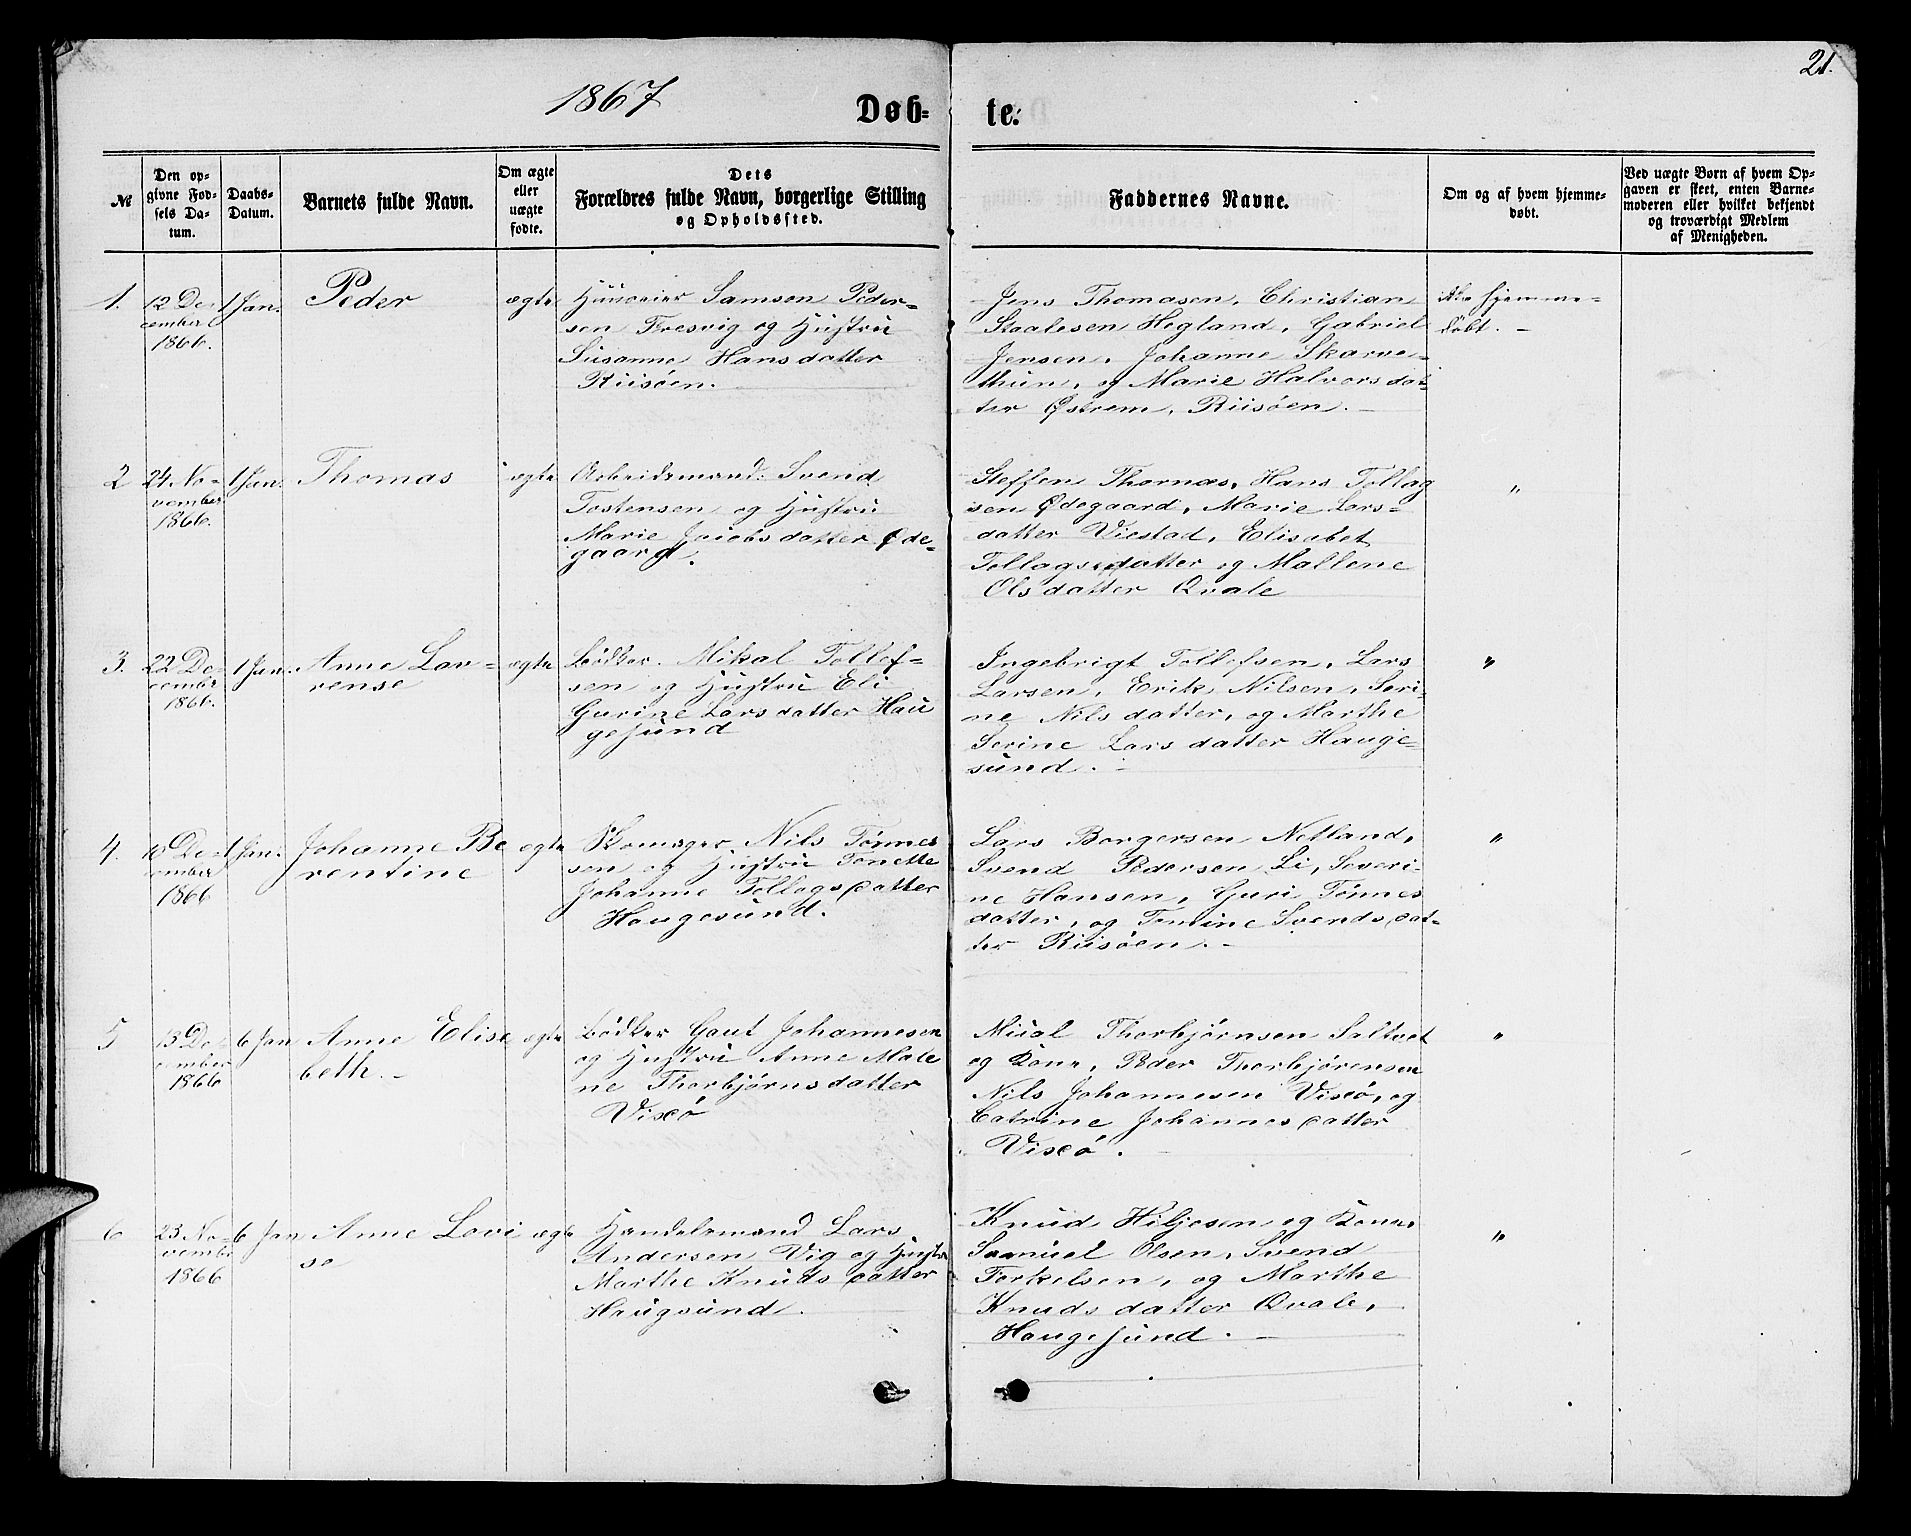 21.
1867
Døb-
te.
№
Den op-
givne Fød-
sels Da-
tum.
Daabs-
Datum.
Barnets fulde Navn.
Om ægte
eller
uægte
fødte.
Dets
Forældres fulde Navn, borgerlige Stilling
og Opholdssted.
Faddernes Navne.
Om og af hvem hjemme-
døbt.
Ved uægte Børn af hvem Op-
gaven er skeet, enten Barne-
moderen eller hvilket bekjendt
og troværdigt Medlem
af Menigheden.
1.
12 De-
cember
1866.
1 Jan.
Peder
ægte
Huuseier Samson Peder-
sen Fresvig og Hustru
Susanne Hansdatter
Riisöen.
Jens Thomasen, Christian
Staalesen Hegland, Gabriel
Jensen, Johanne Skarve-
thun, og Marie Halvorsdat-
ter Østrem, Riisöen. -
Ikke hjemme-
döbt. -
2
24 No-
vember
1866.
1 Jan.
Thomas
ægte
Arbeidsmand: Svend
Tostensen og Hustru
Marie Jacobsdatter Øde-
gaard.
Steffen Thomas, Hans Tollag
sen Ødegaard, Marie Lars-
datter Viestad, Elisabet
Tollagsdatter og Mallene
Olsdatter Qvale
"
3.
22 De-
cember
1866.
1 Jan.
Anne Lav-
rense
ægte
Bödker. Mikal Tollef-
sen og Hustru Eli
Gurine Larsdatter Hau
gesund
Ingebrigt Tollefsen, Lars
Larsen, Erik Nilsen, Seri
ne Nilsdatter, og Marthe
Serine Larsdatter Hauge-
sund. -
"
4.
10 De-
cember
1866
1 Jan.
Johanne Be
rentine
ægte
Skomager Nils Tönnes
sen og Hustru Tonette
Johanne Tollagsdatter
Haugesund.
Lars Borgersen Netland,
Svend Pedersen Li, Severi-
ne Hansen, Guri Tönnes
datter, og Tomine Svendsdat-
ter Riisöen. -
"
5
13 De-
cember
1866
6 Jan
Anne Elisa
beth. -
ægte
Bödker Gaut Johannesen
og Hustru Anne Male
ne Thorbjørnsdatter
Vixö
Mical Thorbjörnsen Saltvet
og Kone, Peder Thorbjörensen
Nils Johannesen Vixö, og
Catrine Johannesdatter
Vixö.
"
6
23 No-
vember
1866
6 Jan
Anne Lovi
se
ægte
Handelsmand Lars
Andersen Vig og Hustru
Marthe Knudsdatter
Haugsund.
Knud Hiljesen og Kone,
Samuel Olsen, Svend
Torkelsen, og Marthe
Knudsdatter Qvale,
Haugesund. -
"